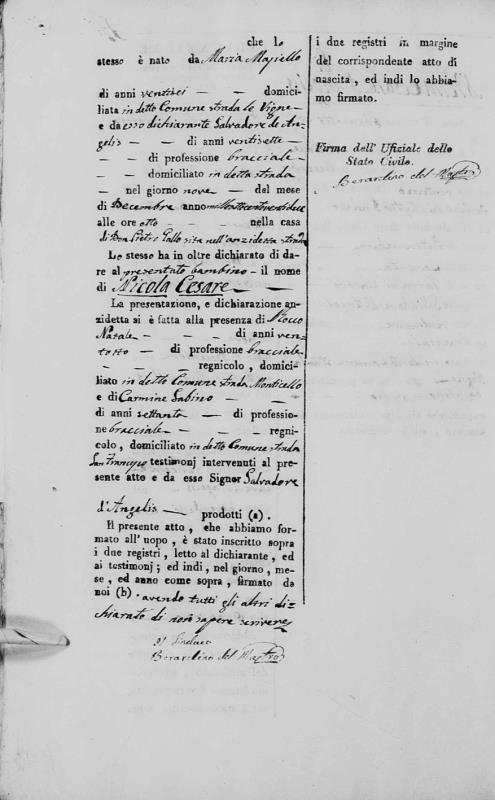 che lo
stesso è nato da Maria Majiello
di anni ventisei — — domici-
liata in detto Comune strada le Vigne
e da esso dichiarante Salvadore de An-
gelis — — di anni ventisette —
— — di professione bracciale —
— — domiciliato in detta strada
— nel giorno nove — del mese
di Decembre anno milleottocentoventidue
alle ore otto — — nella casa
di Don Pietro Gallo sita nell'anzidetta strada
Lo stesso ha in oltre dichiarato di da-
re al presentato bambino — il nome
di Nicola Cesare —
La presentazione, e dichiarazione an-
zidetta si è fatta alla presenza di Rocco
Natale — — — di anni ven-
totto — — di professione bracciale
— — regnicolo, domici-
liato in detto Comune strada Monticello
e di Carmine Sabino — —
di anni settanta — di professio-
ne bracciale — — — regni-
colo, domiciliato in detto Comune strada
San Francesco testimonj intervenuti al pre-
sente atto e da esso Signor Salvadore
d'Angelis — prodotti (a).
Il presente atto, che abbiamo for-
mato all' uopo, è stato inscritto sopra
i due registri, letto al dichiarante, ed
ai testimonj; ed indi, nel giorno, me-
se, ed anno come sopra, firmato da
noi (b). avendo tutti gli altri di-
chiarato di non sapere scrivere
Il Sindaco
Berardino del Mastro
i due registri in margine
del corrispondente atto di
nascita, ed indi lo abbia-
mo firmato.
Firma dell' Ufiziale dello
Stato Civile.
Berardino del Mastro